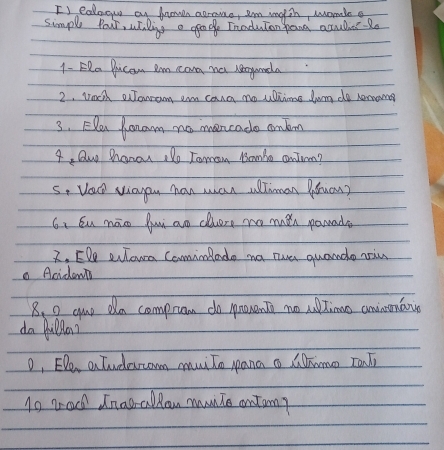 I) coloque as frases abaixo, em inglês, usando o
Simple Past, utilize o google Tradutor para auxiliá-lo
1- Ela ficou em casa na segunda
2. você estavam em casa no ultimo fim de semana
3. Eles foram no mercado ontem
4. Que horas ele Tomou Banho ontem?
5. Você viajou nas suas ultimas férias?
6. Eu não fui ao clube no mês passado
7. Ele estava caminhado na rua quando viu
o Acidente
8. O que ela comprou de presente no ultimo aniversário
da filha?
9. Eles estudaram muito para o último Teste
10 você trabalhou muito ontem?